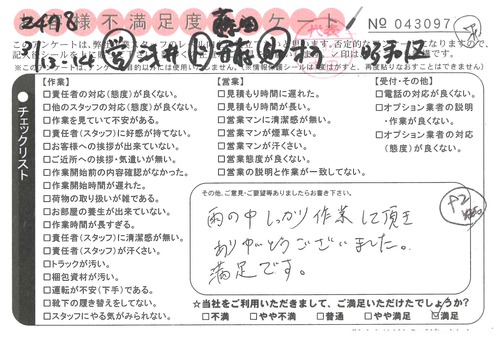 様不満足度 アンケート
No 043097
チェックリスト
【作業】
□責任者の対応(態度)が良くない。
□他のスタッフの対応(態度)が良くない。
□作業を見ていて不安がある。
□責任者(スタッフ)に好感が持てない。
□お客様への挨拶が出来ていない。
□ご近所への挨拶・気遣いが無い。
□作業開始前の内容確認がなかった。
□作業開始時間が遅れた。
□荷物の取り扱いが雑である。
□お部屋の養生が出来ていない。
□作業時間が長すぎる。
□責任者(スタッフ)に清潔感が無い。
□責任者(スタッフ)が汗くさい。
□トラックが汚い。
□梱包資材が汚い。
□運転が不安(下手)である。
□靴下の履き替えをしてない。
□スタッフにやる気がみられない。
【営業】
□見積もり時間に遅れた。
□見積もり時間が長い。
□営業マンに清潔感が無い。
□営業マンが煙草くさい。
□営業マンが汗くさい。
□営業態度が良くない。
□営業の説明と作業が一致してない。
【受付・その他】
□電話の対応が良くない。
□オプション業者の説明
・作業が良くない。
□オプション業者の対応
(態度)が良くない。
その他、ご意見・ご要望等ありましたらお書き下さい。
雨の中しっかり作業して頂き
ありがとうございました。
満足です。
☆当社をご利用いただきまして、ご満足いただけたでしょうか?
□不満 □やや不満 □普通 □やや満足 □満足